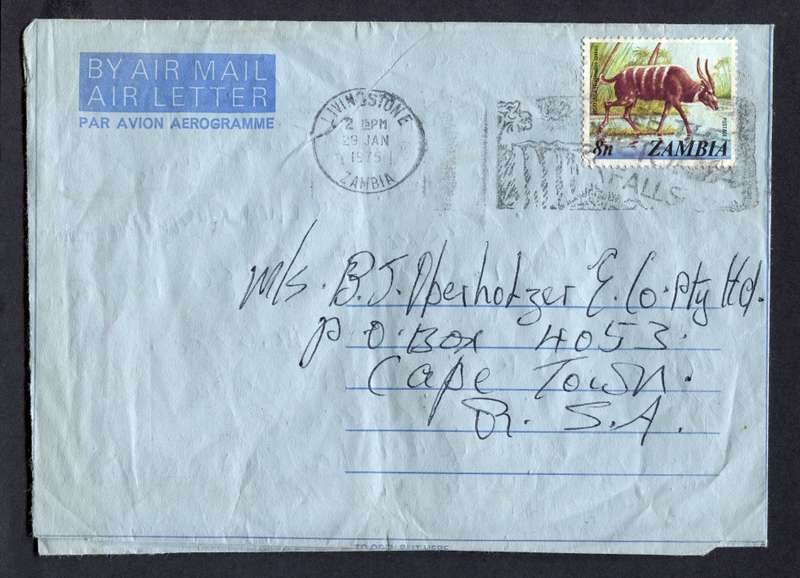 BY AIR MAIL
AIR LETTER
PAR AVION AEROGRAMME
LIVINGSTONE
2 PM
29 JAN
1975
ZAMBIA
FALLS
POSTAGE
8n ZAMBIA
M/s. B.J. Oberholzer E. Co. Pty Ltd.
P.O. Box 4053.
Cape Town.
R.S.A.
TO OPEN SLIT HERE